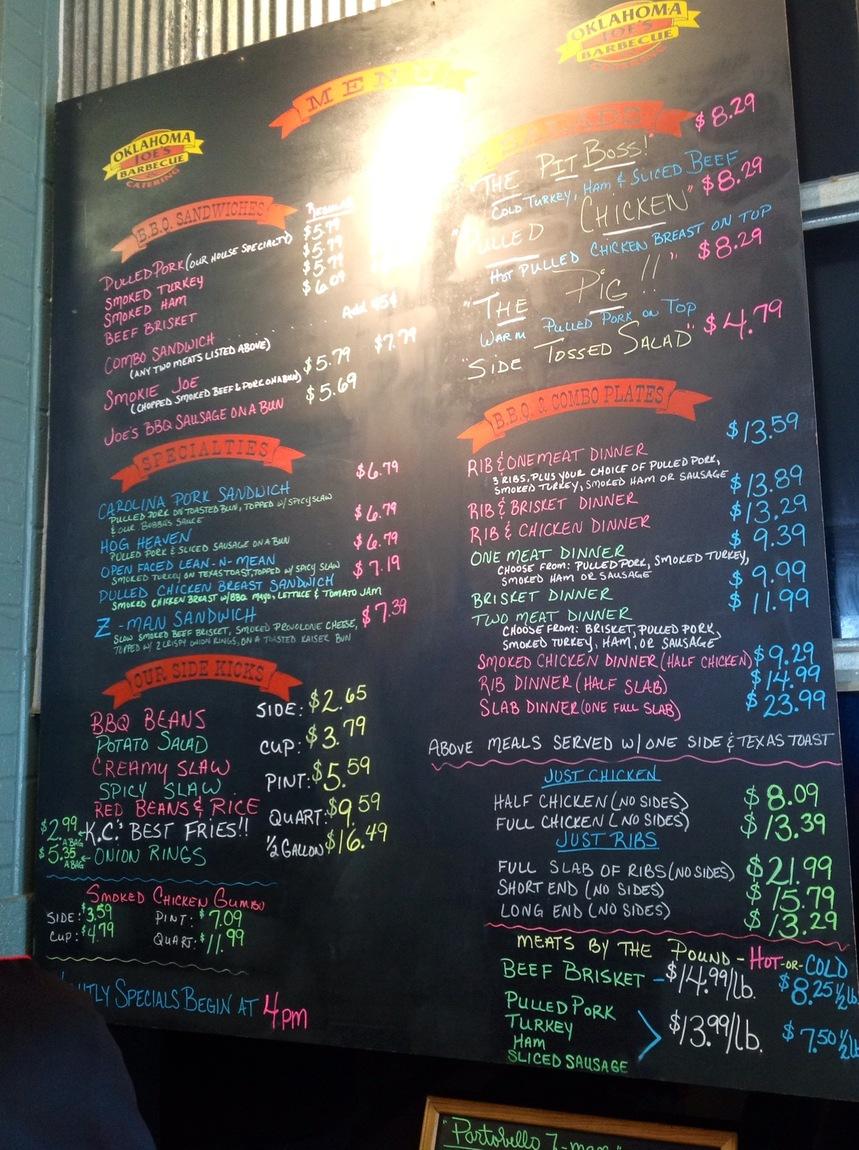 OKLAHOMA
JOE'S
BARBECUE
CATERING
MENU
OKLAHOMA
JOE'S
BARBECUE
CATERING
B.B.Q. SANDWICHES
REGULAR
PULLED PORK (OUR HOUSE SPECIALTY) $5.79
SMOKED TURKEY $5.79
SMOKED HAM $5.79
BEEF BRISKET $6.09
Add 45¢
COMBO SANDWICH $7.79
(ANY TWO MEATS LISTED ABOVE)
SMOKIE JOE $5.79
(CHOPPED SMOKED BEEF & PORK ON A BUN)
JOE'S BBQ SAUSAGE ON A BUN $5.69
SPECIALTIES
CAROLINA PORK SANDWICH $6.79
PULLED PORK ON TOASTED BUN, TOPPED W/ SPICY SLAW
& OUR BUBBA'S SAUCE
HOG HEAVEN $6.79
PULLED PORK & SLICED SAUSAGE ON A BUN
OPEN FACED LEAN-N-MEAN $6.79
SMOKED TURKEY ON TEXAS TOAST, TOPPED W/ SPICY SLAW
PULLED CHICKEN BREAST SANDWICH $7.19
SMOKED CHICKEN BREAST W/BBQ MAYO, LETTUCE & TOMATO JAM
Z-MAN SANDWICH $7.39
SLOW SMOKED BEEF BRISKET, SMOKED PROVOLONE CHEESE,
TOPPED W/ 2 CRISPY ONION RINGS, ON A TOASTED KAISER BUN
OUR SIDE KICKS
BBQ BEANS
POTATO SALAD
CREAMY SLAW
SPICY SLAW
RED BEANS & RICE
$2.99 A BAG K.C.'S BEST FRIES!!
$5.35 A BAG ONION RINGS
SIDE: $2.65
CUP: $3.79
PINT: $5.59
QUART: $9.59
1/2 GALLON $16.49
SMOKED CHICKEN GUMBO
SIDE: $3.59 PINT: $7.09
CUP: $4.79 QUART: $11.99
SPECIALS BEGIN AT 4PM
SALADS
"THE PIT BOSS!" $8.29
COLD TURKEY, HAM & SLICED BEEF
"PULLED CHICKEN" $8.29
HOT PULLED CHICKEN BREAST ON TOP
"THE PIG!!" $8.29
WARM PULLED PORK ON TOP
"SIDE TOSSED SALAD" $4.79
B.B.Q. & COMBO PLATES
RIB & ONE MEAT DINNER $13.59
3 RIBS, PLUS YOUR CHOICE OF PULLED PORK,
SMOKED TURKEY, SMOKED HAM OR SAUSAGE
RIB & BRISKET DINNER $13.89
RIB & CHICKEN DINNER $13.29
ONE MEAT DINNER $9.39
CHOOSE FROM: PULLED PORK, SMOKED TURKEY,
SMOKED HAM OR SAUSAGE
BRISKET DINNER $9.99
TWO MEAT DINNER $11.99
CHOOSE FROM: BRISKET, PULLED PORK,
SMOKED TURKEY, HAM, OR SAUSAGE
SMOKED CHICKEN DINNER (HALF CHICKEN) $9.29
RIB DINNER (HALF SLAB) $14.99
SLAB DINNER (ONE FULL SLAB) $23.99
ABOVE MEALS SERVED W/ ONE SIDE & TEXAS TOAST
JUST CHICKEN
HALF CHICKEN (NO SIDES) $8.09
FULL CHICKEN (NO SIDES) $13.39
JUST RIBS
FULL SLAB OF RIBS (NO SIDES) $21.99
SHORT END (NO SIDES) $15.79
LONG END (NO SIDES) $13.29
MEATS BY THE POUND - HOT-OR-COLD
BEEF BRISKET - $14.99/lb. $8.25 1/2 lb
PULLED PORK
TURKEY
HAM
SLICED SAUSAGE
$13.99/lb. $7.50 1/2 lb
"Portobello Z-man"